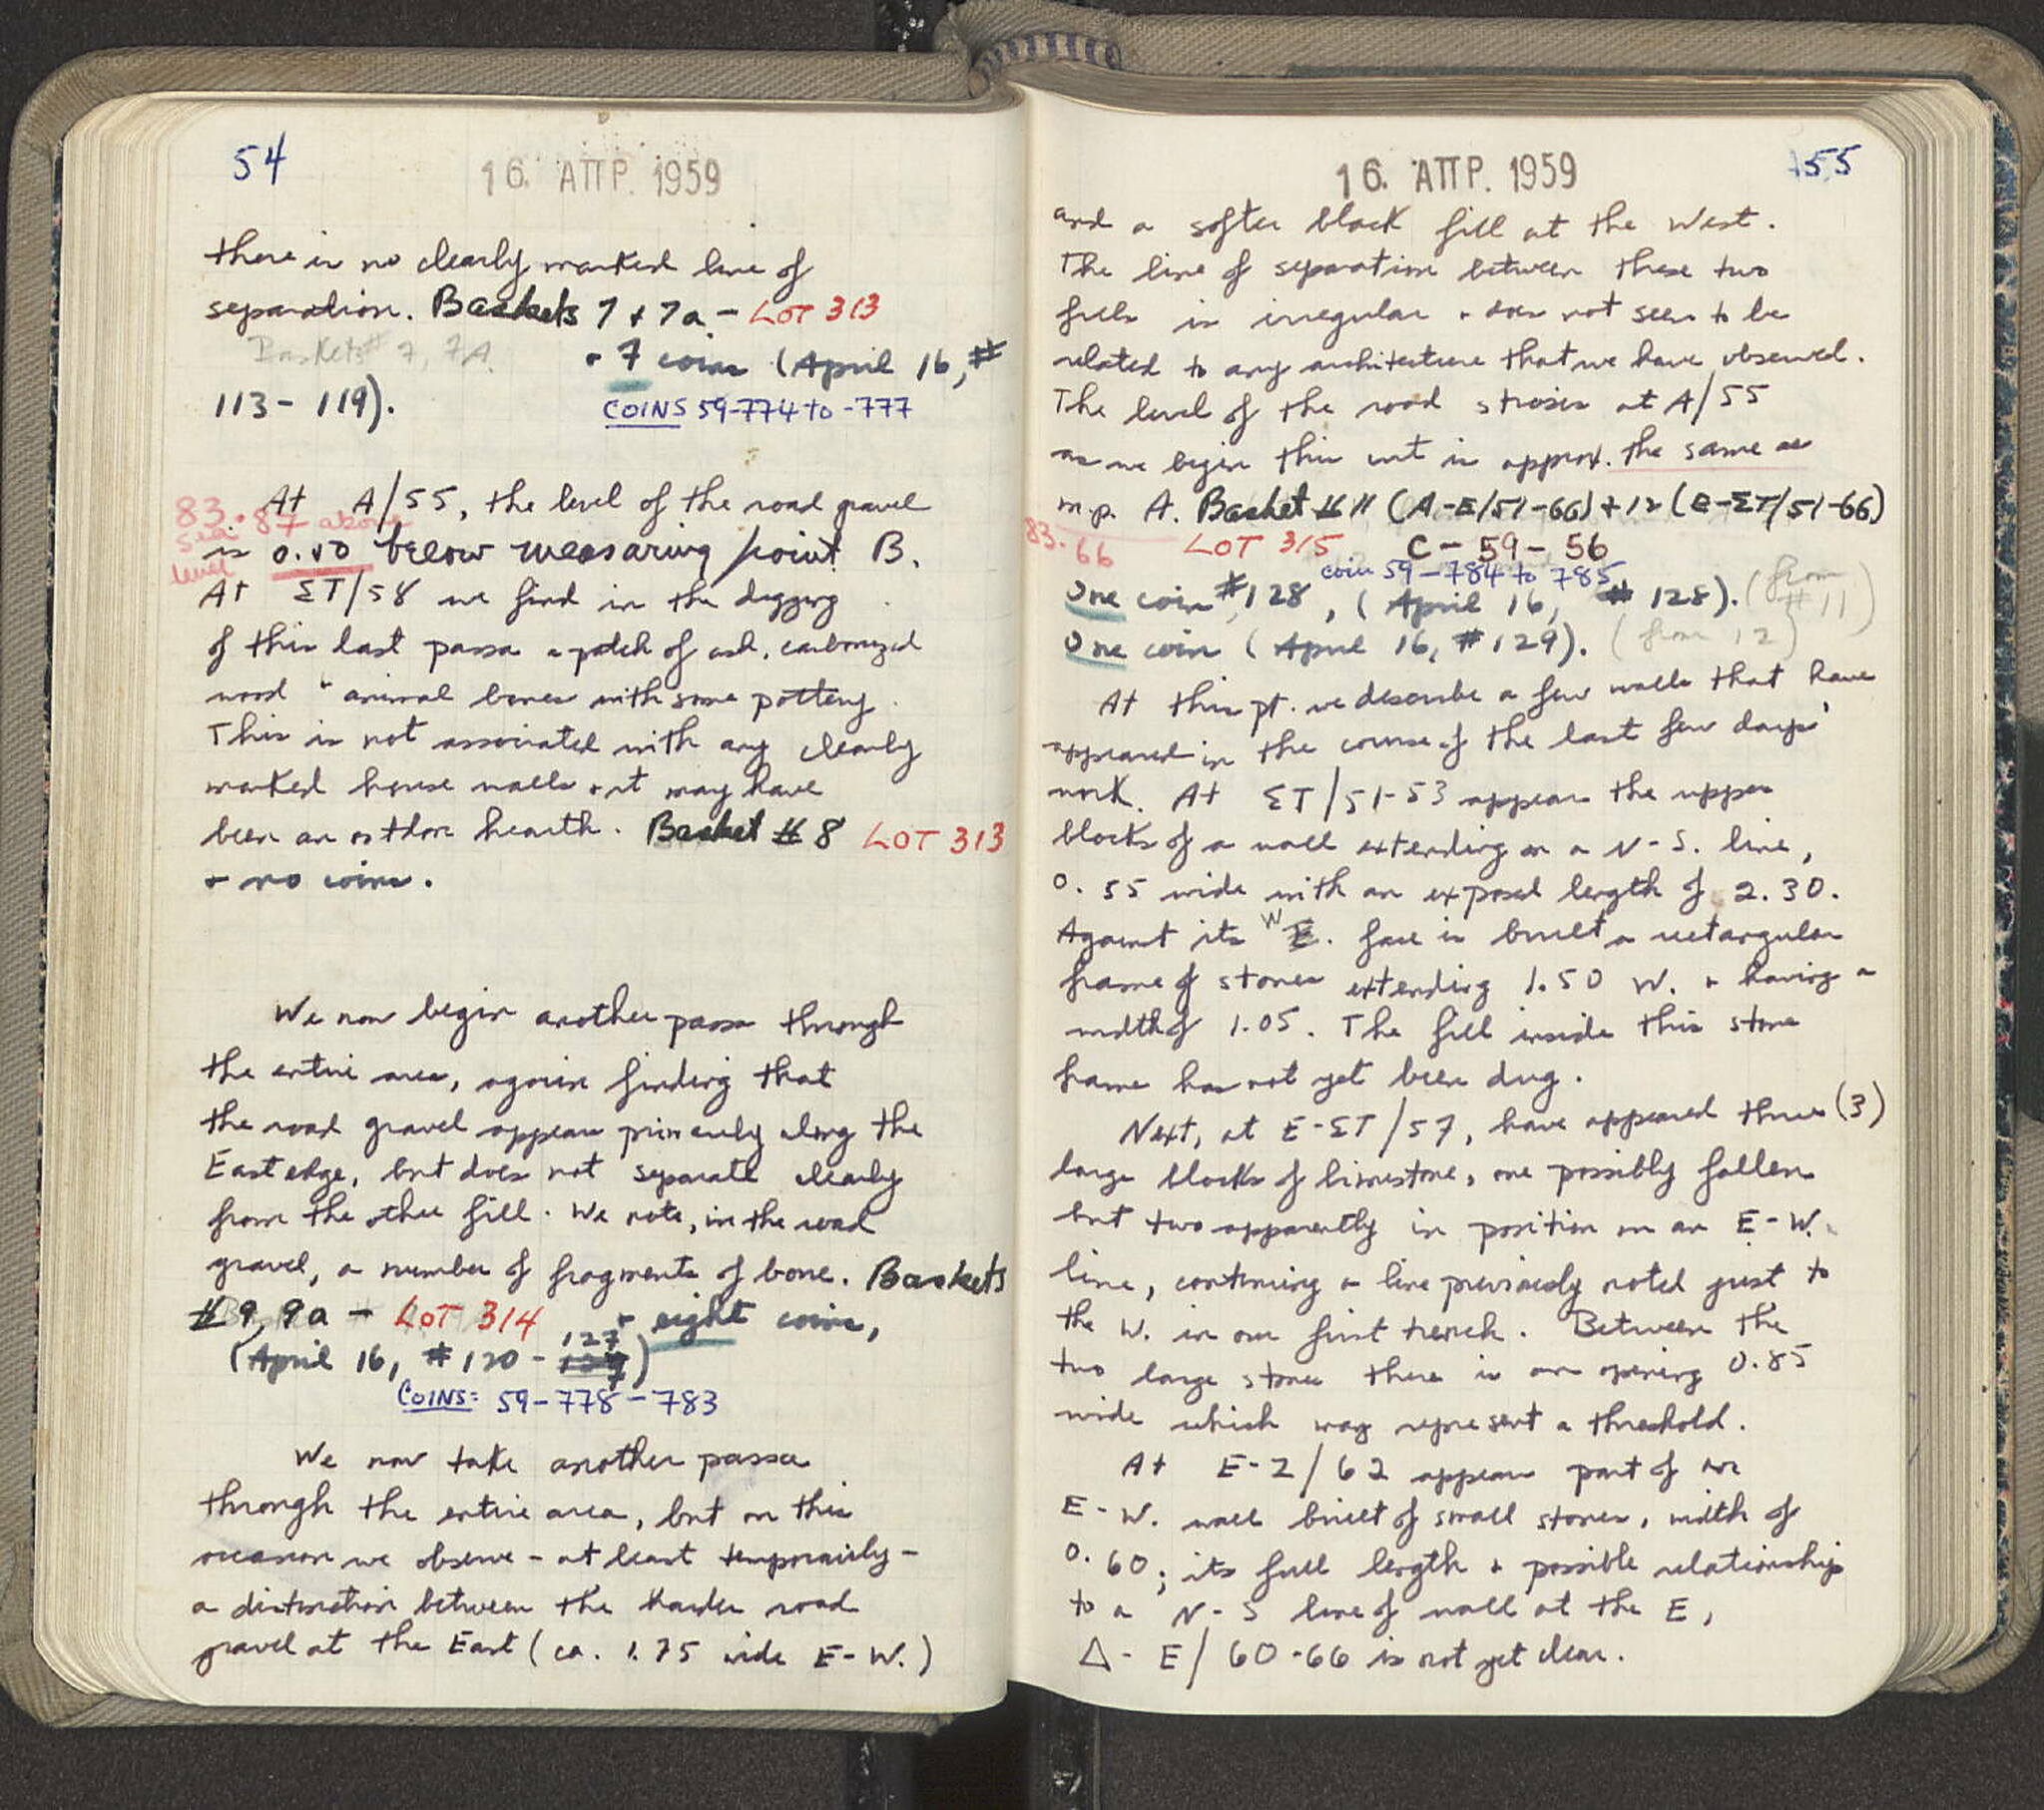 54
16. ΑΠΡ. 1959
there is no clearly marked line of
separation. Baskets 7 + 7a - LOT 313
Baskets # 7, 7A
+ 7 coins (April 16, #
113 - 119).
COINS 59-774 to -777
At A/55, the level of the road gravel
83.87 above
sea
level
is 0.40 below measuring point B.
At ΣΤ/58 we find in the digging
of this last passa a patch of ash, carbonized
wood + animal bones with some pottery.
This is not associated with any clearly
marked house walls & it may have
been an outdoor hearth. Basket # 8 LOT 313
+ no coins.
We now begin another passa through
the entire area, again finding that
the road gravel appears primarily along the
East edge, but does not separate clearly
from the other fill. We note, in the road
gravel, a number of fragments of bone. Baskets
# 9, 9a - LOT 314 + eight coins,
(April 16, # 120 - 127)
COINS: 59-778 - 783
We now take another passa
through the entire area, but on this
occasion we observe - at least temporarily -
a distinction between the harder road
gravel at the East (ca. 1.75 wide E-W.)
16. ΑΠΡ. 1959
55
and a softer black fill at the West.
The line of separation between these two
fills is irregular & does not seem to be
related to any architecture that we have observed.
The level of the road stroses at A/55
as we begin this unit is approx. the same as
m.p. A. Basket # 11 (A-E/51-66) + 12 (E-ΣΤ/51-66)
83.66
LOT 315 C - 59 - 56
coin 59-784 to 785
One coin #128, (April 16, # 128). (from
# 11)
One coin (April 16, # 129). (from 12)
At this pt. we describe a few walls that have
appeared in the course of the last few days'
work. At ΣΤ/51-53 appears the upper
blocks of a wall extending on a N-S. line,
0.55 wide with an exposed length of 2.30.
Against its W E. face is built a rectangular
frame of stones extending 1.50 W. & having a
width of 1.05. The fill inside this stone
frame has not yet been dug.
Next, at E-ΣΤ/57, have appeared three (3)
large blocks of limestone, one possibly fallen
but two apparently in position on an E-W.
line, continuing a line previously noted just to
the W. in our first trench. Between the
two large stones there is an opening 0.85
wide which may represent a threshold.
At E-Z/62 appears part of an
E-W. wall built of small stones, width of
0.60; its full length & possible relationship
to a N-S line of wall at the E,
Δ-E/60-66 is not yet clear.